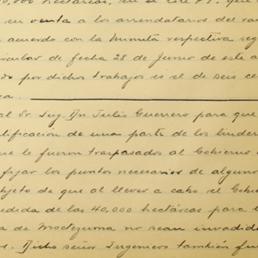 0,000 hectáreas, en el Lote Nº. que
en venta a los arrendatarios del ra
acuerdo con la minuta respectiva seg
de fecha 28 de Junio de este a
por dichos trabajos es el de seis c
al Sr. Ing. Dn. Julio Guerrero para que
tificacion de una parte de los linder
le fueron traspasados al Gobierno
fijar los puntos necesarios de alguno
objeto de que al llever a cabo el Gobi
edida de las 40,000 hectáreas para l
a de Moctezuma no sean invadida
s. Dicho señor Ingeniero también fu